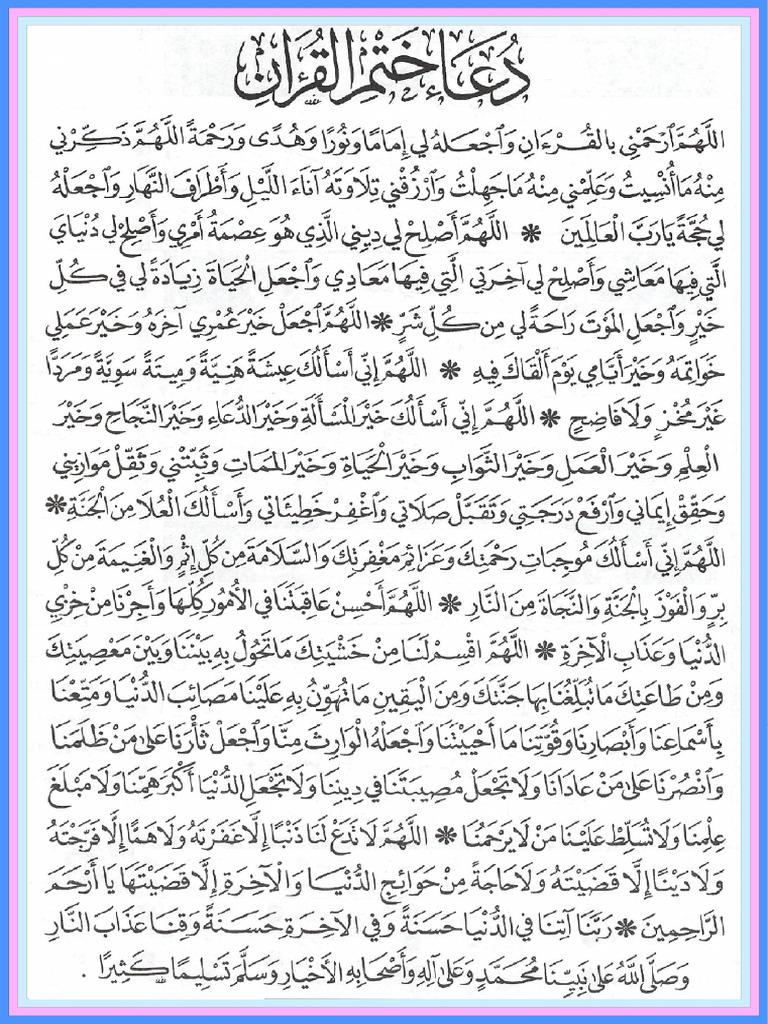 دُعَاءُ خَتْمِ الْقُرْآنِ
اللَّهُمَّ ٱرْحَمْنِي بِالقُرْءَانِ وَٱجْعَلهُ لِي إِمَامًا وَنُورًا وَهُدًى وَرَحْمَةً اللَّهُمَّ ذَكِّرْنِي
مِنْهُ مَا أُنْسِيتُ وَعَلِّمْنِي مِنْهُ مَا جَهِلْتُ وَٱرْزُقْنِي تِلَاوَتَهُ آنَاءَ اللَّيْلِ وَأَطْرَافَ النَّهَارِ وَٱجْعَلْهُ
لِي حُجَّةً يَا رَبَّ الْعَالَمِينَ * اللَّهُمَّ أَصْلِحْ لِي دِينِي الَّذِي هُوَ عِصْمَةُ أَمْرِي وَأَصْلِحْ لِي دُنْيَايَ
الَّتِي فِيهَا مَعَاشِي وَأَصْلِحْ لِي آخِرَتِي الَّتِي فِيهَا مَعَادِي وَٱجْعَلِ الْحَيَاةَ زِيَادَةً لِي فِي كُلِّ
خَيْرٍ وَٱجْعَلِ المَوْتَ رَاحَةً لِي مِن كُلِّ شَرٍّ * اللَّهُمَّ ٱجْعَلْ خَيْرَ عُمْرِي آخِرَهُ وَخَيْرَ عَمَلِي
خَوَاتِمَهُ وَخَيْرَ أَيَّامِي يَوْمَ أَلْقَاكَ فِيهِ * اللَّهُمَّ إِنِّي أَسْأَلُكَ عِيشَةً هَنِيَّةً وَمِيتَةً سَوِيَّةً وَمَرَدًّا
غَيْرَ مُخْزٍ وَلَا فَاضِحٍ * اللَّهُمَّ إِنِّي أَسْأَلُكَ خَيْرَ المَسْأَلَةِ وَخَيْرَ الدُّعَاءِ وَخَيْرَ النَّجَاحِ وَخَيْرَ
الْعِلْمِ وَخَيْرَ الْعَمَلِ وَخَيْرَ الثَّوَابِ وَخَيْرَ الْحَيَاةِ وَخَيْرَ المَمَاتِ وَثَبِّتْنِي وَثَقِّلْ مَوَازِينِي
وَحَقِّقْ إِيمَانِي وَٱرْفَعْ دَرَجَتِي وَتَقَبَّلْ صَلَاتِي وَٱغْفِرْ خَطِيئَاتِي وَأَسْأَلُكَ الْعُلَا مِنَ الْجَنَّةِ *
اللَّهُمَّ إِنِّي أَسْأَلُكَ مُوجِبَاتِ رَحْمَتِكَ وَعَزَائِمَ مَغْفِرَتِكَ وَالسَّلَامَةَ مِن كُلِّ إِثْمٍ وَالْغَنِيمَةَ مِنْ كُلِّ
بِرٍّ وَالْفَوْزَ بِالْجَنَّةِ وَالنَّجَاةَ مِنَ النَّارِ * اللَّهُمَّ أَحْسِنْ عَاقِبَتَنَا فِي الأُمُورِ كُلِّهَا وَأَجِرْنَا مِنْ خِزْيِ
الدُّنْيَا وَعَذَابِ الْآخِرَةِ * اللَّهُمَّ اقْسِمْ لَنَا مِنْ خَشْيَتِكَ مَا تَحُولُ بِهِ بَيْنَنَا وَبَيْنَ مَعْصِيَتِكَ
وَمِنْ طَاعَتِكَ مَا تُبَلِّغُنَا بِهَا جَنَّتَكَ وَمِنَ الْيَقِينِ مَا تُهَوِّنُ بِهِ عَلَيْنَا مَصَائِبَ الدُّنْيَا وَمَتِّعْنَا
بِأَسْمَاعِنَا وَأَبْصَارِنَا وَقُوَّتِنَا مَا أَحْيَيْتَنَا وَٱجْعَلْهُ الْوَارِثَ مِنَّا وَٱجْعَلْ ثَأْرَنَا عَلَىٰ مَنْ ظَلَمَنَا
وَٱنْصُرْنَا عَلَىٰ مَنْ عَادَانَا وَلَا تَجْعَلْ مُصِيبَتَنَا فِي دِينِنَا وَلَا تَجْعَلِ الدُّنْيَا أَكْبَرَ هَمِّنَا وَلَا مَبْلَغَ
عِلْمِنَا وَلَا تُسَلِّطْ عَلَيْنَا مَنْ لَا يَرْحَمُنَا * اللَّهُمَّ لَا تَدَعْ لَنَا ذَنْبًا إِلَّا غَفَرْتَهُ وَلَا هَمًّا إِلَّا فَرَّجْتَهُ
وَلَا دَيْنًا إِلَّا قَضَيْتَهُ وَلَا حَاجَةً مِنْ حَوَائِجِ الدُّنْيَا وَالْآخِرَةِ إِلَّا قَضَيْتَهَا يَا أَرْحَمَ
الرَّاحِمِينَ * رَبَّنَا آتِنَا فِي الدُّنْيَا حَسَنَةً وَفِي الآخِرَةِ حَسَنَةً وَقِنَا عَذَابَ النَّارِ
وَصَلَّى اللَّهُ عَلَىٰ نَبِيِّنَا مُحَمَّدٍ وَعَلَىٰ آلِهِ وَأَصْحَابِهِ الأَخْيَارِ وَسَلَّمَ تَسْلِيمًا كَثِيرًا .